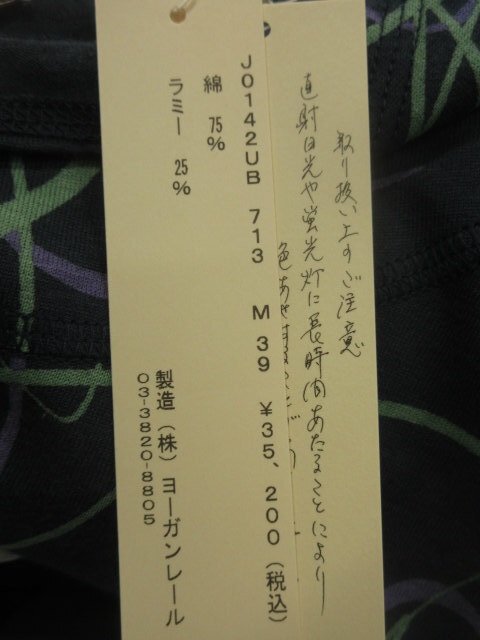 取り扱い上のご注意
直射日光や蛍光灯に長時間あたることにより
色あせ
J0142UB 713 M 39 ¥35,200(税込)
綿 75%
ラミー 25%
製造(株)ヨーガンレール
03-3820-8805